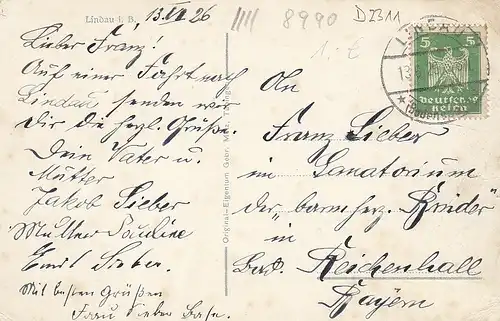 Lindau i. B.
13.VI 26
8990
DB11
1.-€
Lieber Franz!
Auf einer Fahrt nach
Lindau senden wir
Dir die herzl. Grüße.
Dein Vater u.
Mutter
Jakob Sieber
Mutter Pauline
Emil Sieber.
Mit besten Grüßen
Frau Sieber Base.
Original-Eigentum Gebr. M
LINDAU
13
(Bodensee
5 5
deutsches
reich
An
Franz Sieber
im Sanatorium
der „barmherz. Brüder"
in
Bad. Reichenhall
Bayern